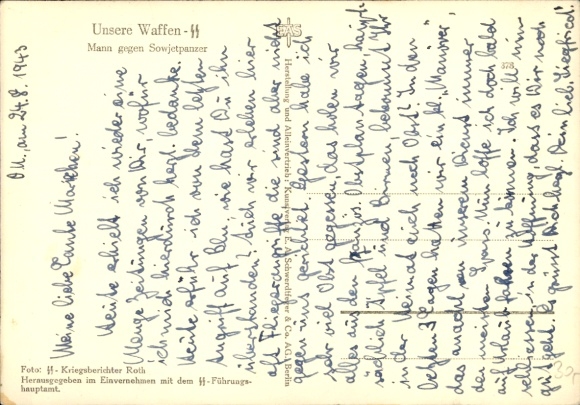 Unsere Waffen-SS
Mann gegen Sowjetpanzer
EAS
373
Herstellung und Alleinvertrieb: Kunstverlag E. A. Schwerdtfeger & Co. AG., Berlin
Foto: SS-Kriegsberichter Roth
Herausgegeben im Einvernehmen mit dem SS-Führungs-
hauptamt.
O.U., am 24.8.1943
Meine liebe Tante Mariechen!
Heute erhielt ich wieder eine
Menge Zeitungen von Dir, wofür
ich mich hierdurch herzl. bedanke.
Heute erfuhr ich von dem letzten
Angriff auf Bln., wie hast Du ihn
überstanden? Auch wir erleben hier
oft Fliegerangriffe die sind aber nicht
gegen uns gerichtet. Gestern habe ich
sehr viel Obst gegessen, das holen wir
alles aus den französ. Obstplantagen, haupt-
sächlich Äpfel und Birnen. Bekommt Ihr
in der Heimat auch noch Obst? In den
letzten 3 Tagen hatten wir ein kl. "Manöver",
das macht von unserem Dienst immer
den meisten Spass. Nun hoffe ich doch bald
auf Urlaub fahren zu können. Ich will nun
schliessen in der Hoffnung, dass es Dir noch
gut geht. Es grüsst Dich herzl. Dein lieb. Siegfried.